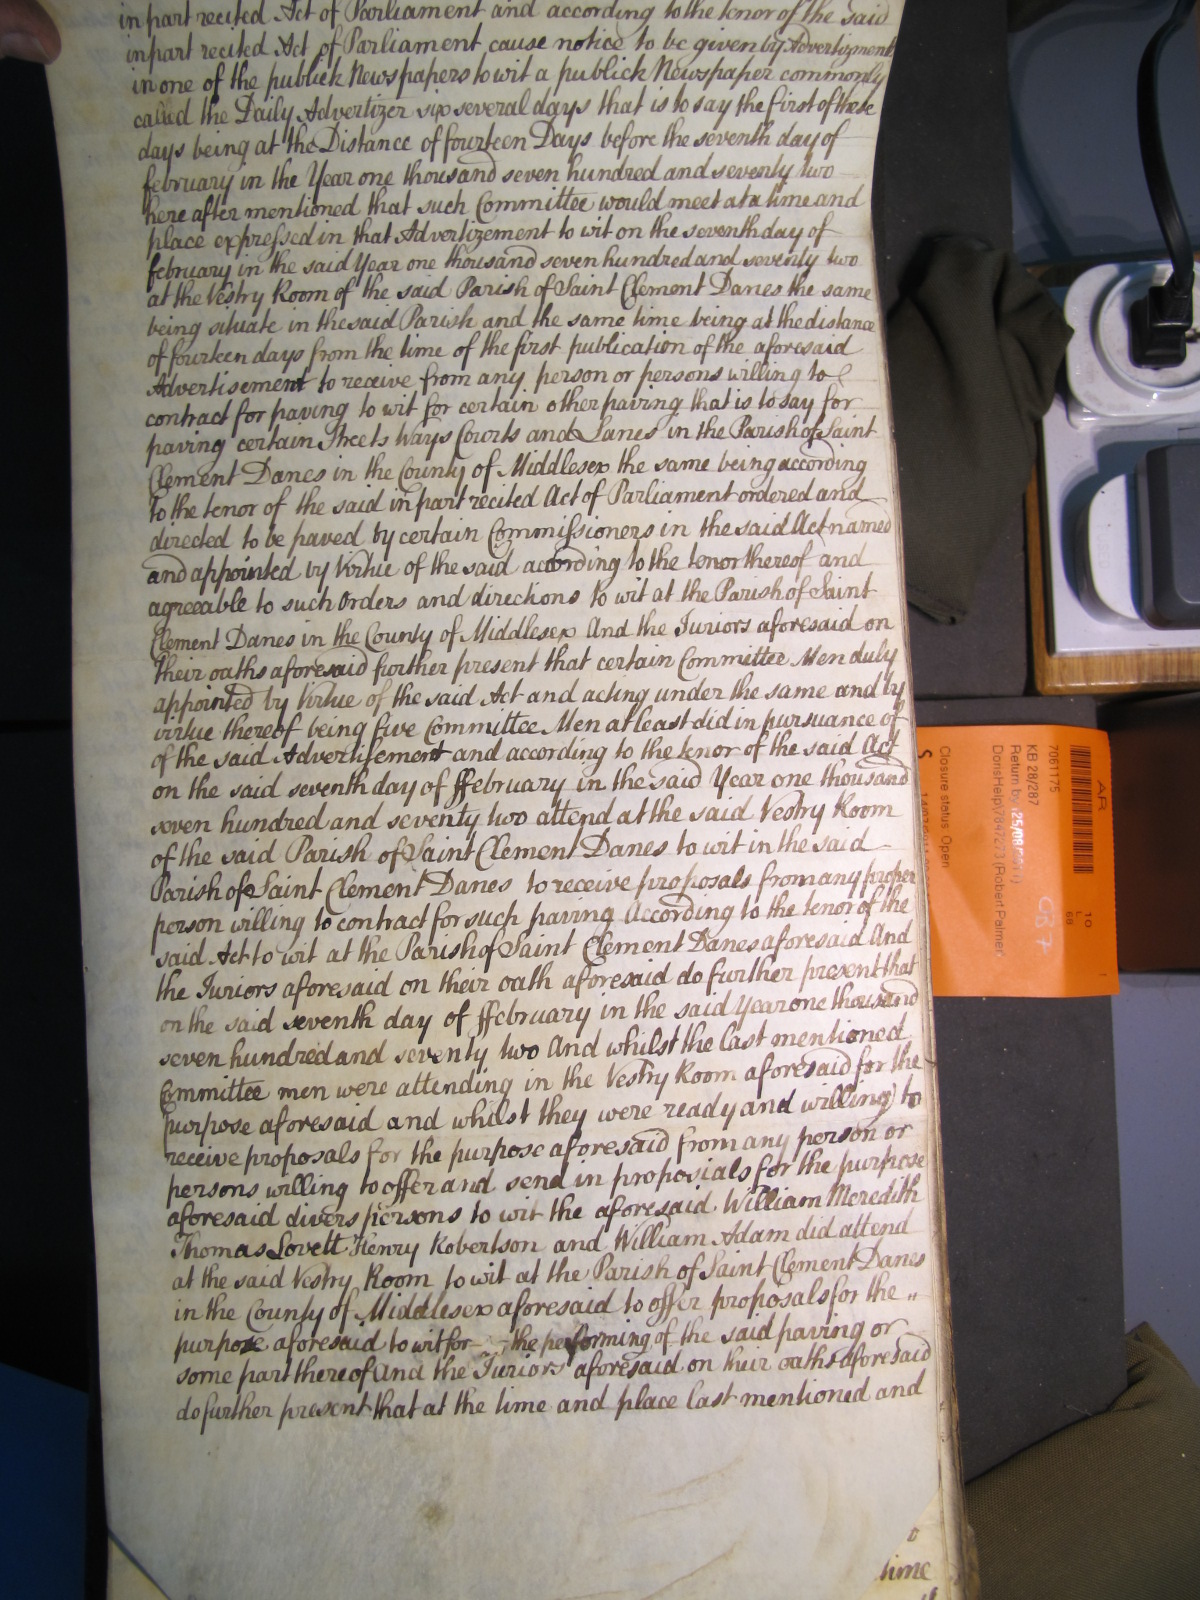 in part recited Act of Parliament and according to the tenor of the said
in part recited Act of Parliament cause notice to be given by Advertizement
in one of the publick Newspapers to wit a publick Newspaper commonly
called the Daily Advertizer six several days that is to say the first of these
days being at the Distance of fourteen Days before the seventh day of
february in the Year one thousand seven hundred and seventy two
here after mentioned that such Committee would meet at a time and
place expressed in that Advertizement to wit on the seventh day of
february in the said Year one thousand seven hundred and seventy two
at the Vestry Room of the said Parish of Saint Clement Danes the same
being situate in the said Parish and the same time being at the distance
of fourteen days from the time of the first publication of the aforesaid
Advertisement to receive from any person or persons willing to
contract for paving to wit for certain other paving that is to say for
paving certain Streets Ways Courts and Lanes in the Parish of Saint
Clement Danes in the County of Middlesex the same being according
to the tenor of the said in part recited Act of Parliament ordered and
directed to be paved by certain Commissioners in the said Act named
and appointed by Virtue of the said according to the tenor thereof and
agreeable to such Orders and directions to wit at the Parish of Saint
Clement Danes in the County of Middlesex And the Juriors aforesaid on
their oaths aforesaid further present that certain Committee Men duly
appointed by Virtue of the said Act and acting under the same and by
virtue thereof being five Committee Men at least did in pursuance of
of the said Advertisement and according to the tenor of the said Act
on the said seventh day of ffebruary in the said Year one thousand
seven hundred and seventy two attend at the said Vestry Room
of the said Parish of Saint Clement Danes to wit in the said
Parish of Saint Clement Danes to receive proposals from any proper
person willing to contract for such paving According to the tenor of the
said Act to wit at the Parish of Saint Clement Danes aforesaid And
the Juriors aforesaid on their oath aforesaid do further present that
on the said seventh day of ffebruary in the said Year one thousand
seven hundred and seventy two And whilst the last mentioned
Committee men were attending in the Vestry Room aforesaid for the
purpose aforesaid and whilst they were ready and willing to
receive proposals for the purpose aforesaid from any person or
persons willing to offer and send in proposials for the purpose
aforesaid divers persons to wit the aforesaid William Meredith
Thomas Lovett Henry Robertson and William Adam did attend
at the said Vestry Room to wit at the Parish of Saint Clement Danes
in the County of Middlesex aforesaid to offer proposals for the
purpose aforesaid to wit for the performing of the said paving or
some part thereof And the Juriors aforesaid on their oaths aforesaid
do further present that at the time and place last mentioned and
time
AR
7061175
KB 28/287
Return by (25/08/2011)
DorisHelp\7847273 (Robert Palmer
Closure status: Open
S
10
L
68